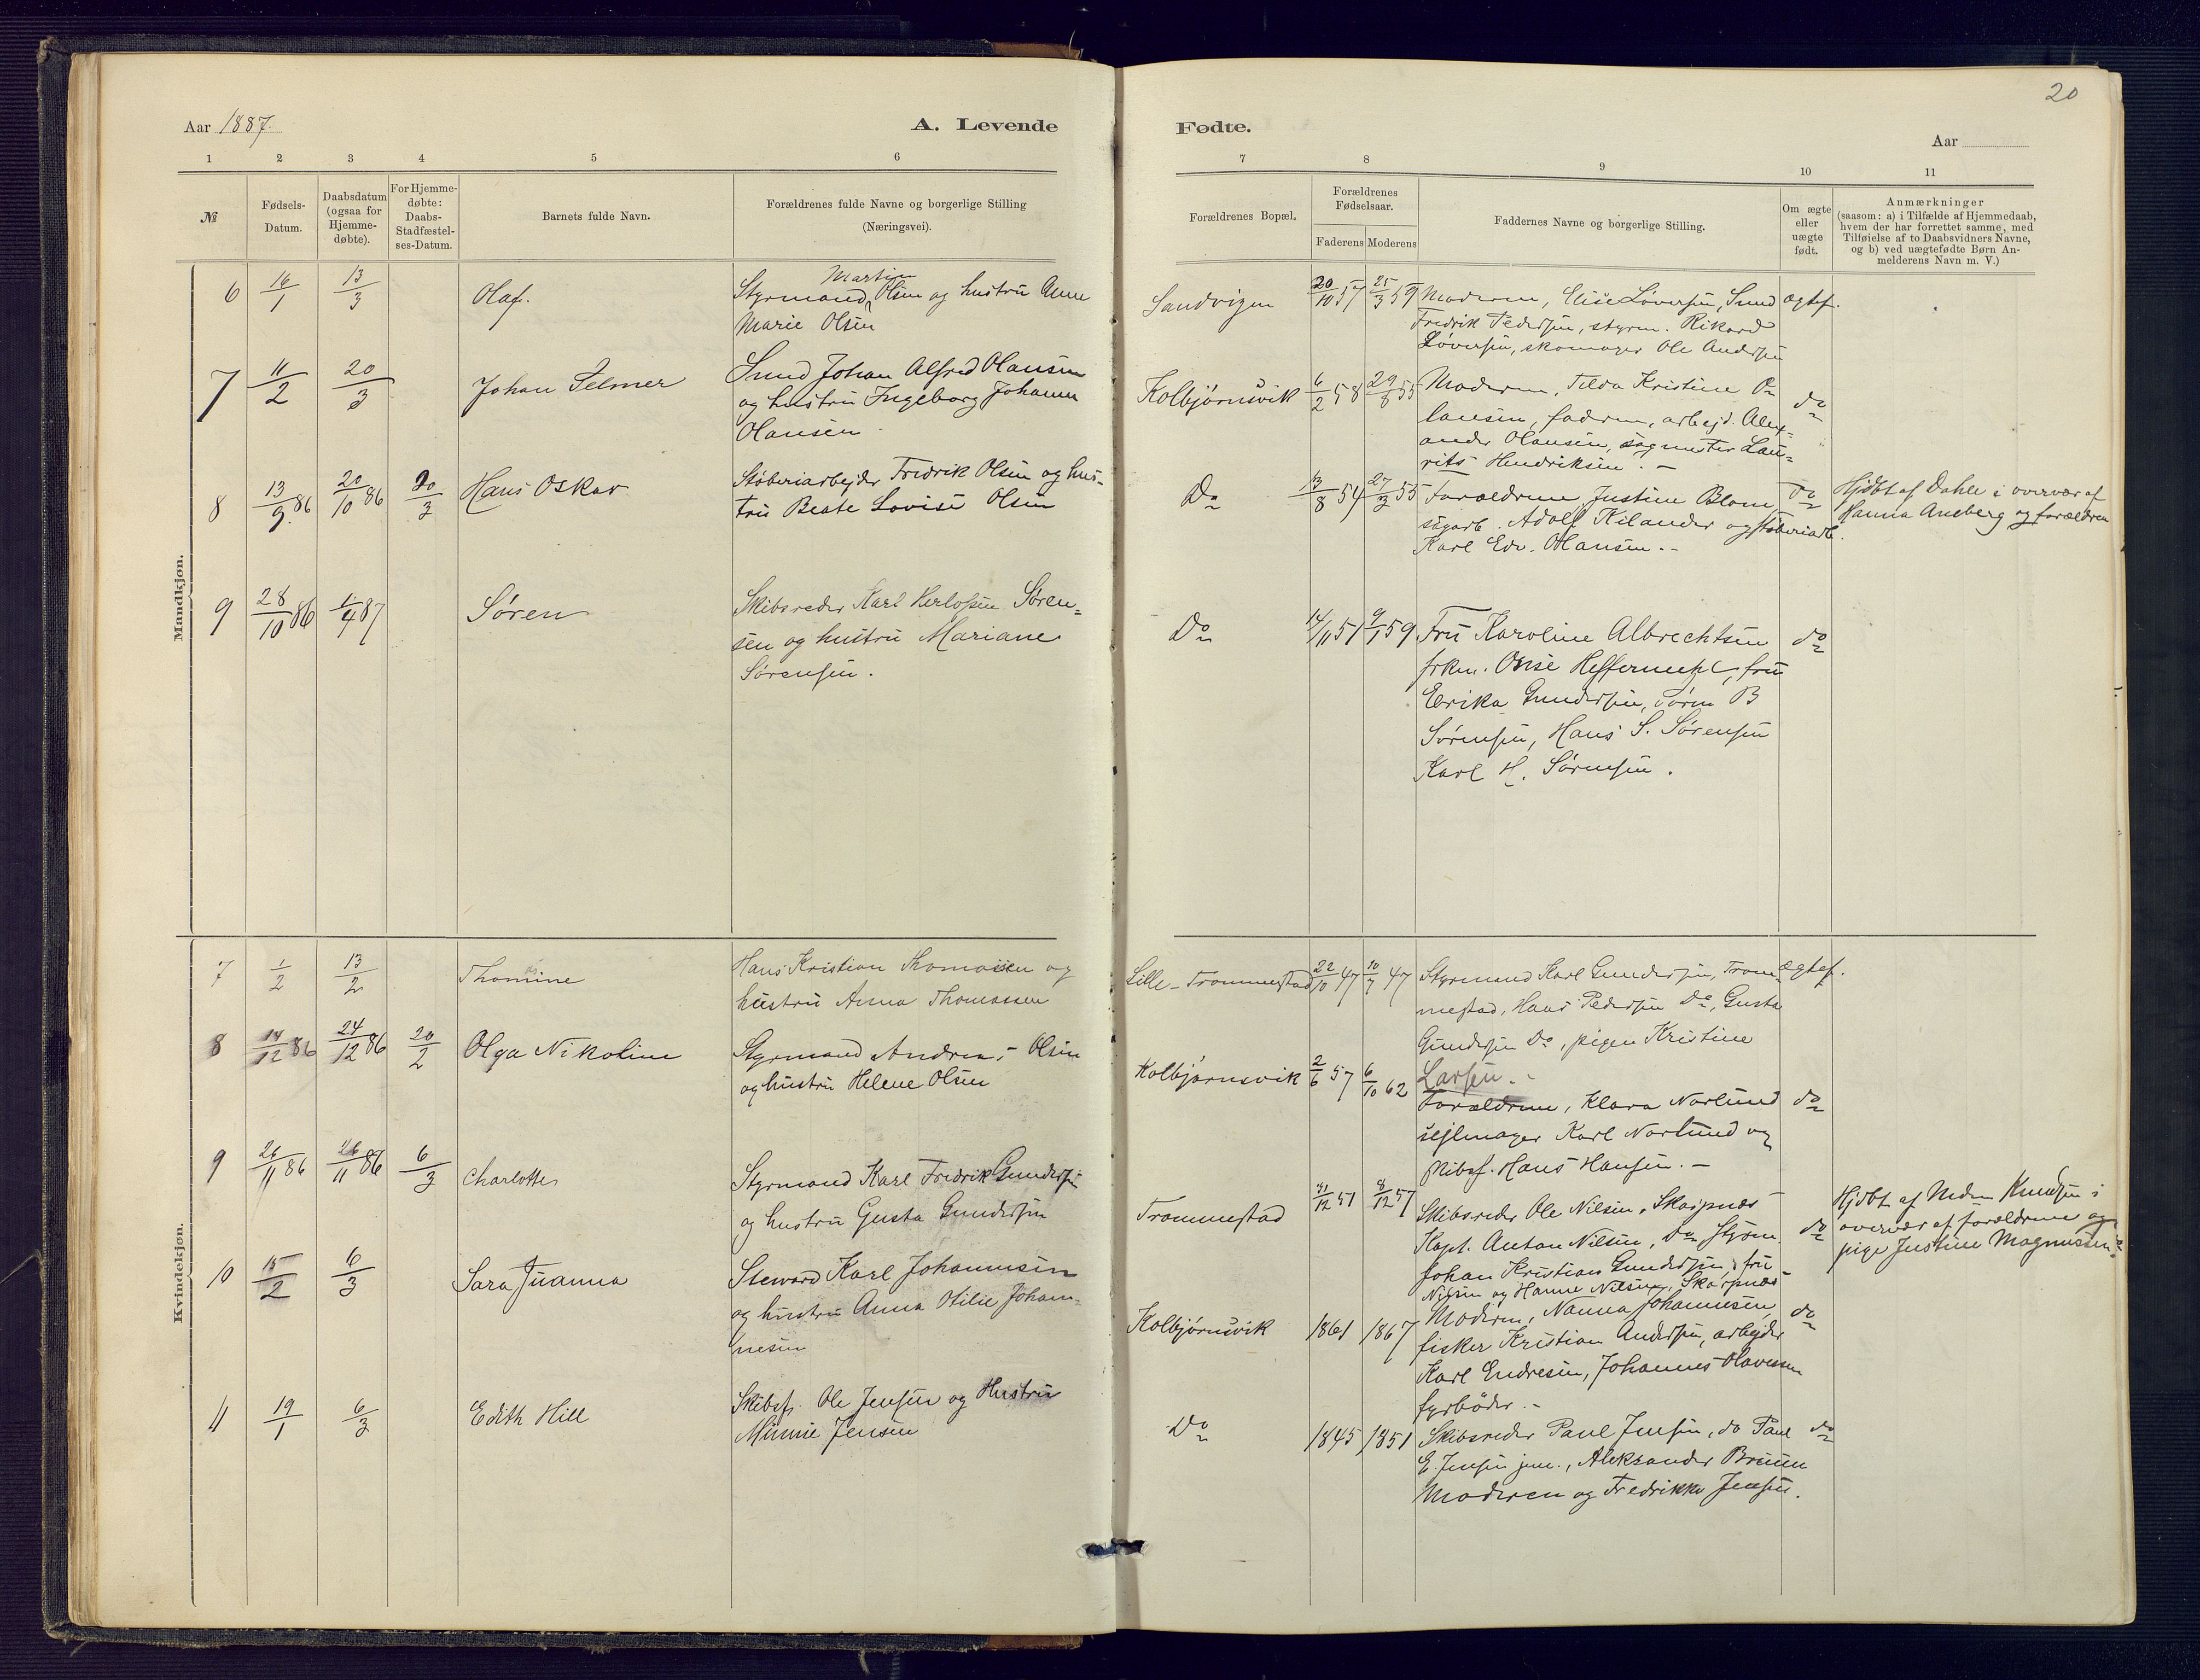 20
Aar 1887.
A. Levende
Fødte.
Aar
1 2 3 4 5 6
7 8 9 10 11
№
Fødsels-
Datum.
Daabsdatum
(ogsaa for
Hjemme-
døbte).
For Hjemme-
døbte:
Daabs-
Stadfæstel-
ses-Datum.
Barnets fulde Navn.
Forældrenes fulde Navne og borgerlige Stilling
(Næringsvei).
Forældrenes Bopæl.
Forældrenes
Fødselsaar.
Faderens Moderens
Faddernes Navne og borgerlige Stilling.
Om ægte
eller
uægte
født.
Anmærkninger
(saasom: a) i Tilfælde af Hjemmedaab,
hvem der har forrettet samme, med
Tilføielse af to Daabsvidners Navne,
og b) ved uægtefødte Børn An-
melderens Navn m. V.)
Mandkjøn.
6 16/1 13/3 Olaf.
Martin
Styrmand Olsen og hustru Anne
Marie Olsen
Sandvigen 20/10 57 25/3 59
Moderen, Elise Løversen, Smed
Fredrik Pedersen, styrm. Rikard
Løversen, skomager Ole Andersen
ægtef.
7 11/2 20/3 Johan Selmer
Smed Johan Alfred Olausen
og hustru Ingeborg Johanne
Olausen
Kolbjørnsvik 6/2 58 29/8 55
Moderen, Tilda Kristine O=
lausen, faderen, arbejd. Alex=
ander Olausen, sagmster Lau=
rits Hendriksen. -
do
8 13/9 86 20/10 86 20/3 Hans Oskar
Støberiarbejder Fredrik Olsen og hus=
tru Beate Lovise Olsen
Do 13/8 54 27/3 55
Forældrene, Justine Blom
sagarb. Adolf Kilander og støberiarb.
Karl Edv. Olausen. -
do
Hjdbt af Dahle i overvær af
Hanna Aneberg og forældren
9 28/10 86 1/4 87 Søren
Skibsreder Karl Herlofsen Søren=
sen og hustru Mariane
Sørensen.
Do 14/11 51 9/1 59
Fru Karoline Albrechtsen
frkn. Onse Heffermehl, fru
Erika Gundersen, Søren B
Sørensen, Hans S. Sørensen
Karl H. Sørensen.
do
Kvindekjøn.
7 1/2 13/2 Thomine
Hans Kristian Thomassen og
hustru Anna Thomassen
Lille-Trommestad 22/10 47 10/7 47
Styrmand Karl Gundersen, Trom=
mestad, Hans Pedersen Do, Gusta
Gundersen Do, pigen Kristine
Larsen. -
ægtef.
8 14/12 86 24/12 86 20/2 Olga Nikoline
Styrmand Andreas Olsen
og hustru Helene Olsen
Kolbjørnsvik 2/6 57 6/10 62
Forældrene, Klara Norlund
sejlmager Karl Norlund og
skibsf. Hans Hansen. -
do
9 26/11 86 26/11 86 6/3 Charlotte
Styrmand Karl Fredrik Gundersen
og hustru Gusta Gundersen
Trommestad 31/12 51 8/12 57
Skibsreder Ole Nilsen, Skarpnæs
Kapt. Anton Nilsen, Do Styrm.
Johan Kristian Gundersen, fru
Nilsen og Hanne Nilsen, Skarpnæs
do
Hjdbt af Knudsen i
overvær af forældrene og
pige Justine Magnussen
10 15/2 6/3 Sara Juanna
Steward Karl Johannesen
og hustru Anna Otilie Johan=
nesen
Kolbjørnsvik 1861 1867
Moderen, Nanna Johannesen,
fisker Kristian Andersen, arbejder
Karl Endresen, Johannes Olavesen
fyrbøder. -
do
11 19/1 6/3 Edith Hill
Skibsf. Ole Jensen og Hustru
Minnie Jensen
Do 1845 1851
Skibsreder Paul Jensen, do Paul
E. Jensen jun., Aleksander Bruun
Moderen og Fredrikke Jensen.
do